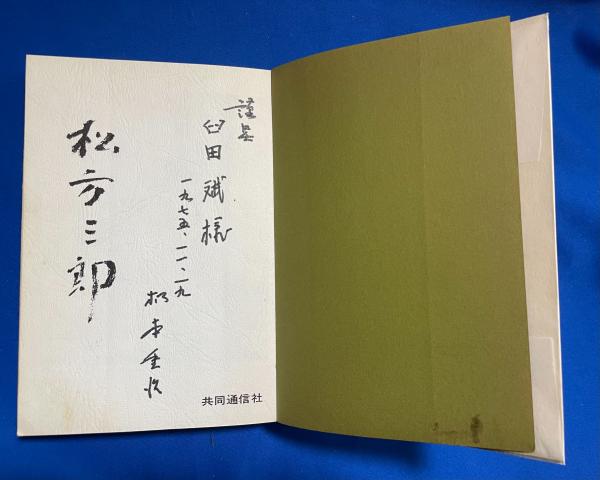 謹呈
臼田 斌 様
一九七五、一一、一九
松本重治
松方三郎
共同通信社